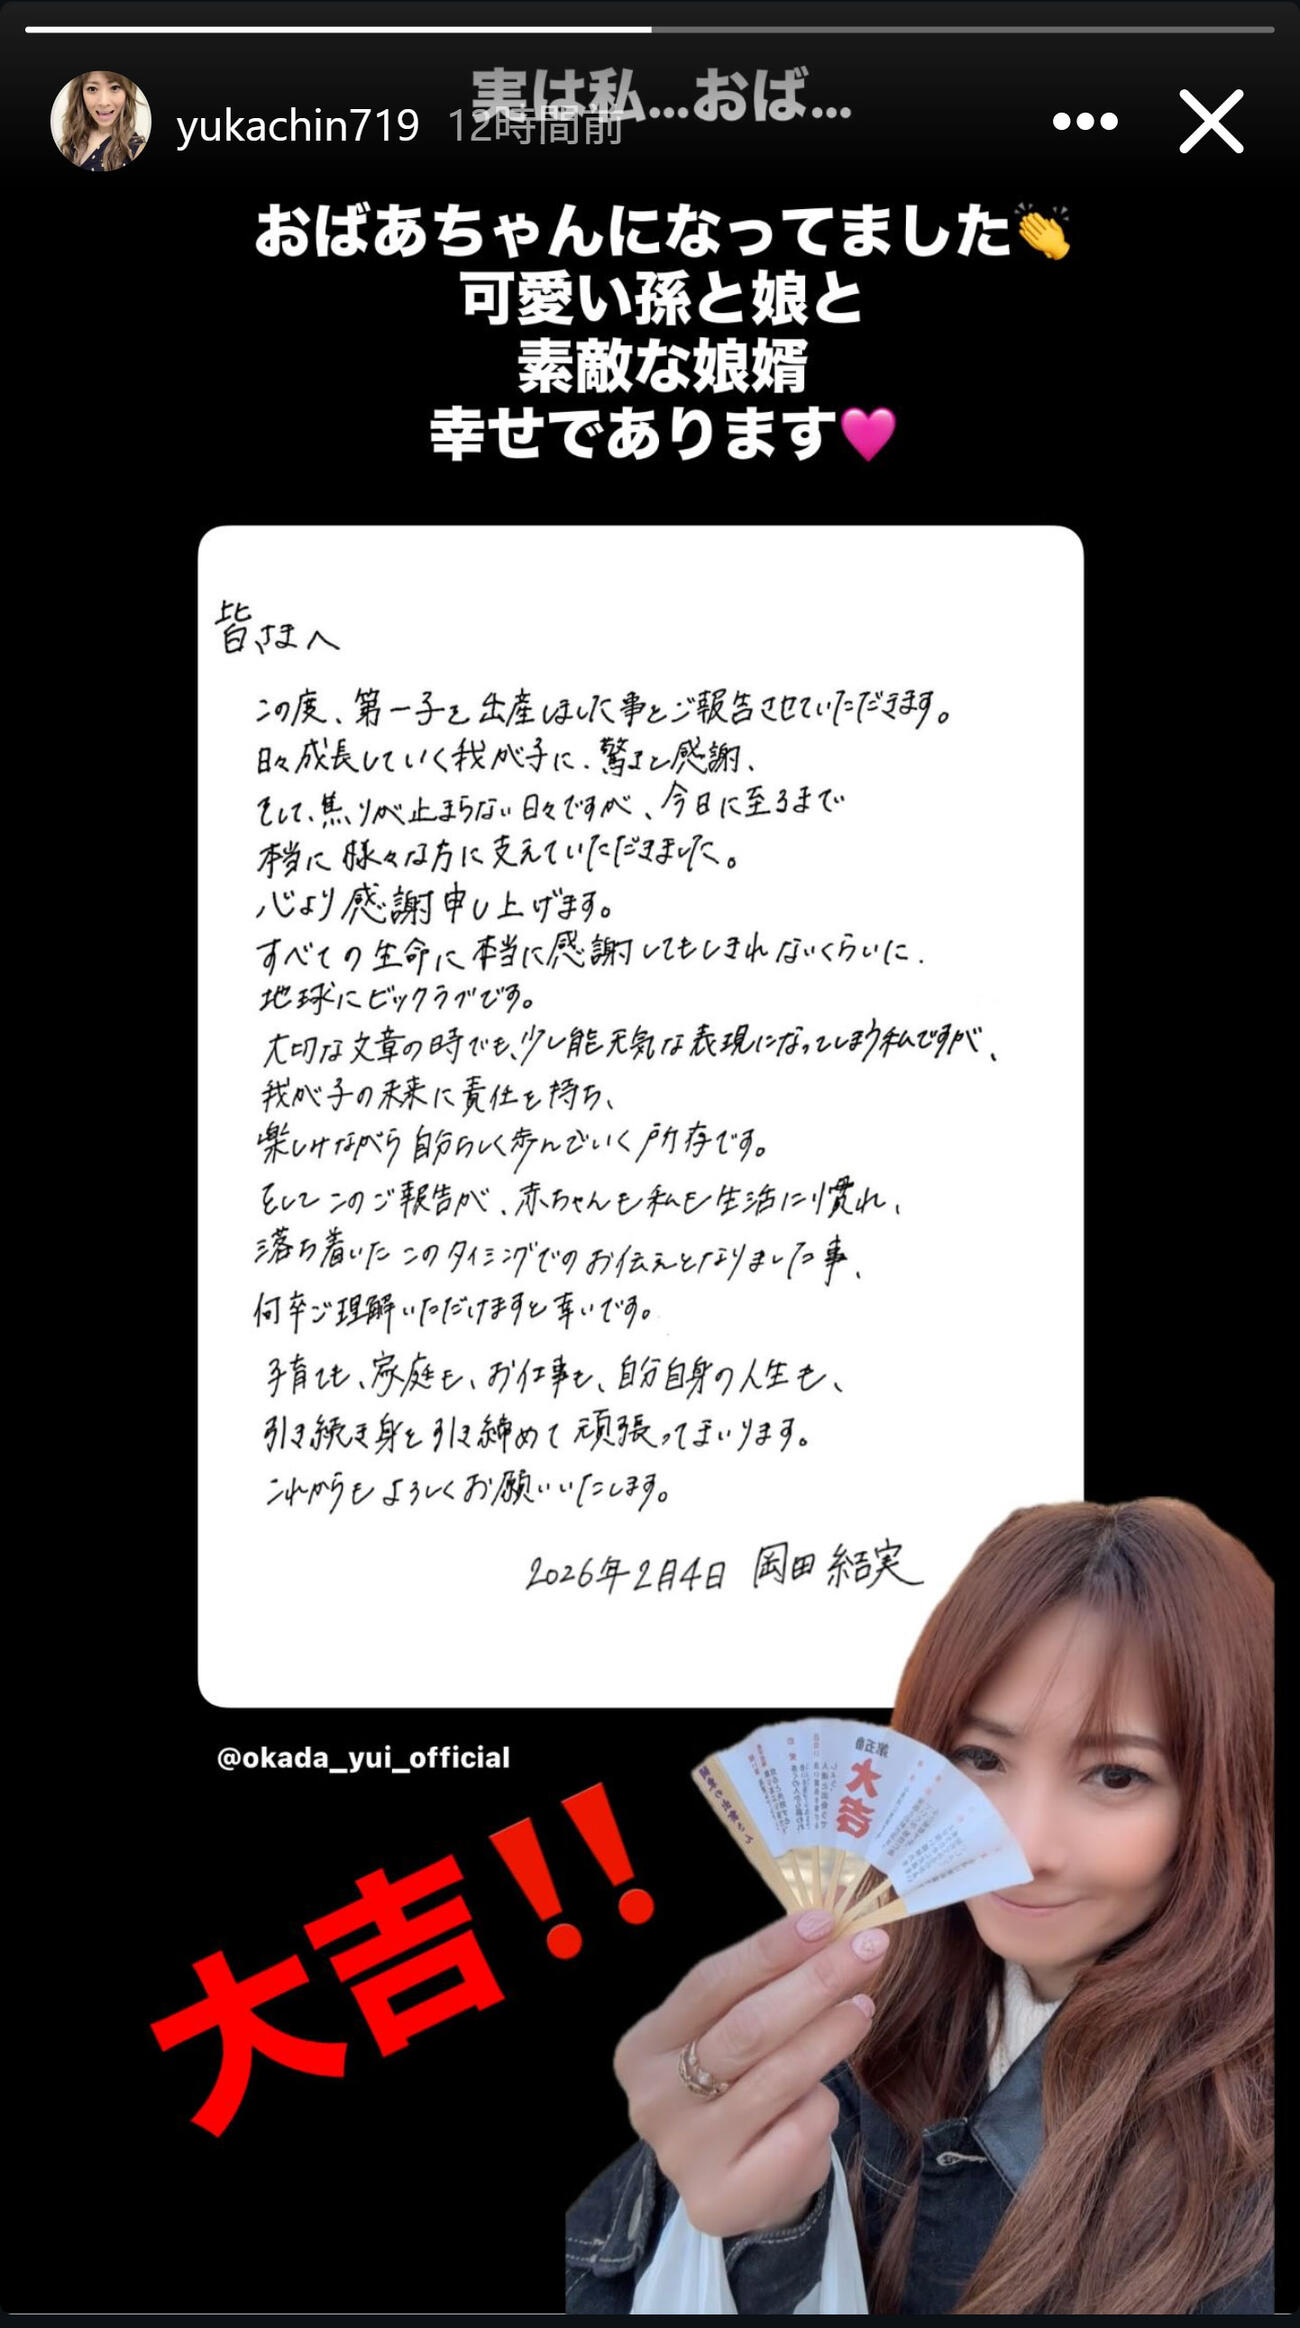 実は私…おば…
yukachin719 12時間前
おばあちゃんになってました👏
可愛い孫と娘と
素敵な娘婿
幸せであります🩷
皆さまへ
この度、第一子を出産しました事をご報告させていただきます。
日々成長していく我が子に、驚きと感謝、
そして、焦りが止まらない日々ですが、今日に至るまで
本当に様々な方に支えていただきました。
心より感謝申し上げます。
すべての生命に本当に感謝してもしきれないくらいに、
地球にビックラブです。
大切な文章の時でも、少し能天気な表現になってしまう私ですが、
我が子の未来に責任を持ち、
楽しみながら自分らしく歩んでいく所存です。
そしてこのご報告が、赤ちゃんも私も生活に慣れ、
落ち着いたこのタイミングでのお伝えとなりました事、
何卒ご理解いただけますと幸いです。
子育ても、家庭も、お仕事も、自分自身の人生も、
引き続き身を引き締めて頑張ってまいります。
これからもよろしくお願いいたします。
2026年2月4日 岡田結実
@okada_yui_official
第五番
大吉
大吉!!